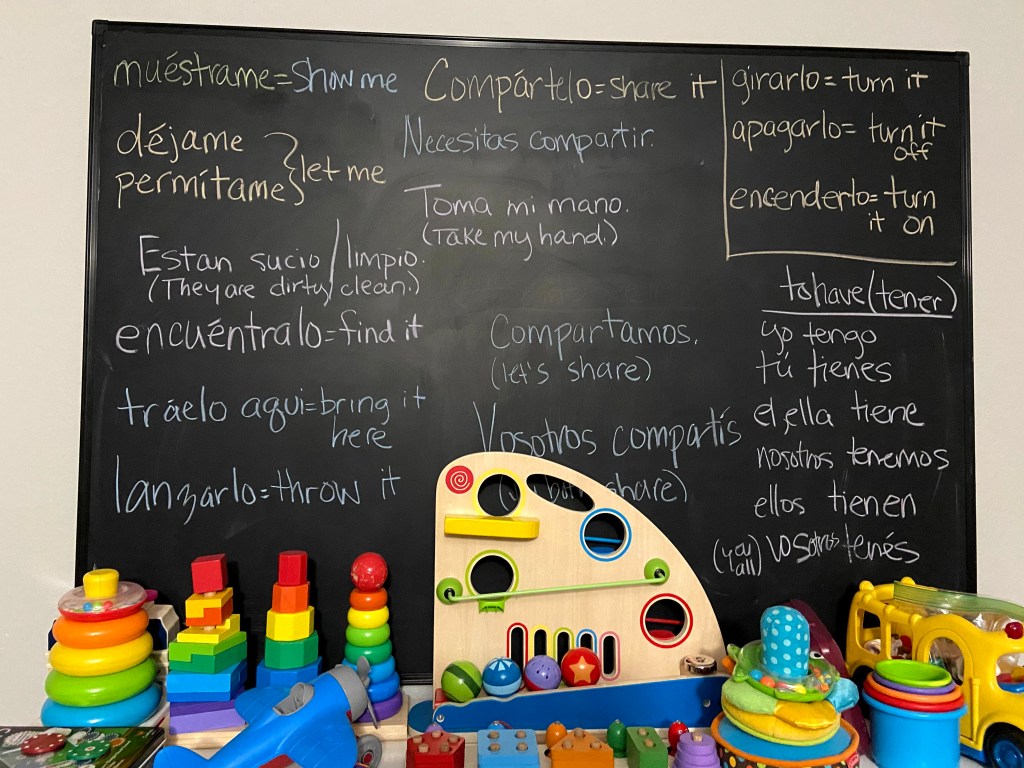 muéstrame=show me
déjame
permítame
let me
Estan sucio/limpio.
(They are dirty/clean.)
encuéntralo=find it
tráelo aqui=bring it
here
lanzarlo=throw it
Compártelo=share it
Necesitas compartir.
Toma mi mano.
(Take my hand.)
Compartamos.
(let's share)
Vosotros compartís
share)
girarlo=turn it
apagarlo=turn it
off
encenderlo=turn
it on
to have (tener)
yo tengo
tú tienes
el,ella tiene
nosotros tenemos
ellos tienen
(you all) vosotros tenés